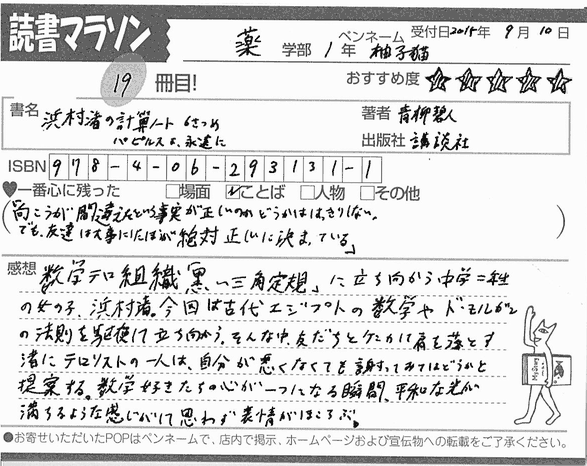 読書マラソン
薬 学部 1年 ペンネーム 柚子猫 受付日2015年 9月10日
19 冊目! おすすめ度 ☆☆☆☆☆
書名 浜村渚の計算ノート 6さつめ
パピルスよ、永遠に
著者 青柳碧人
出版社 講談社
ISBN 978-4-06-293131-1
♥一番心に残った □場面 ☑ことば □人物 □その他
(「向こうが間違えたという事実が正しいのかどうかははっきりしない。
でも、友達は大事にしたほうが絶対正しいに決まっている」)
感想 数学テロ組織「黒い三角定規」に立ち向かう中学二年生
の女の子、浜村渚。今回は古代エジプトの数学やド・モルガン
の法則を駆使して立ち向かう。そんな中、友だちとケンカして肩を落とす
渚にテロリストの一人は、自分が悪くなくても謝ってみてはどうかと
提案する。数学好きたちの心が一つになる瞬間、平和な光が
満ちるような感じがして思わず表情がほころぶ。
●お寄せいただいたPOPはペンネームで、店内で掲示、ホームページおよび宣伝物への転載をご了承ください。